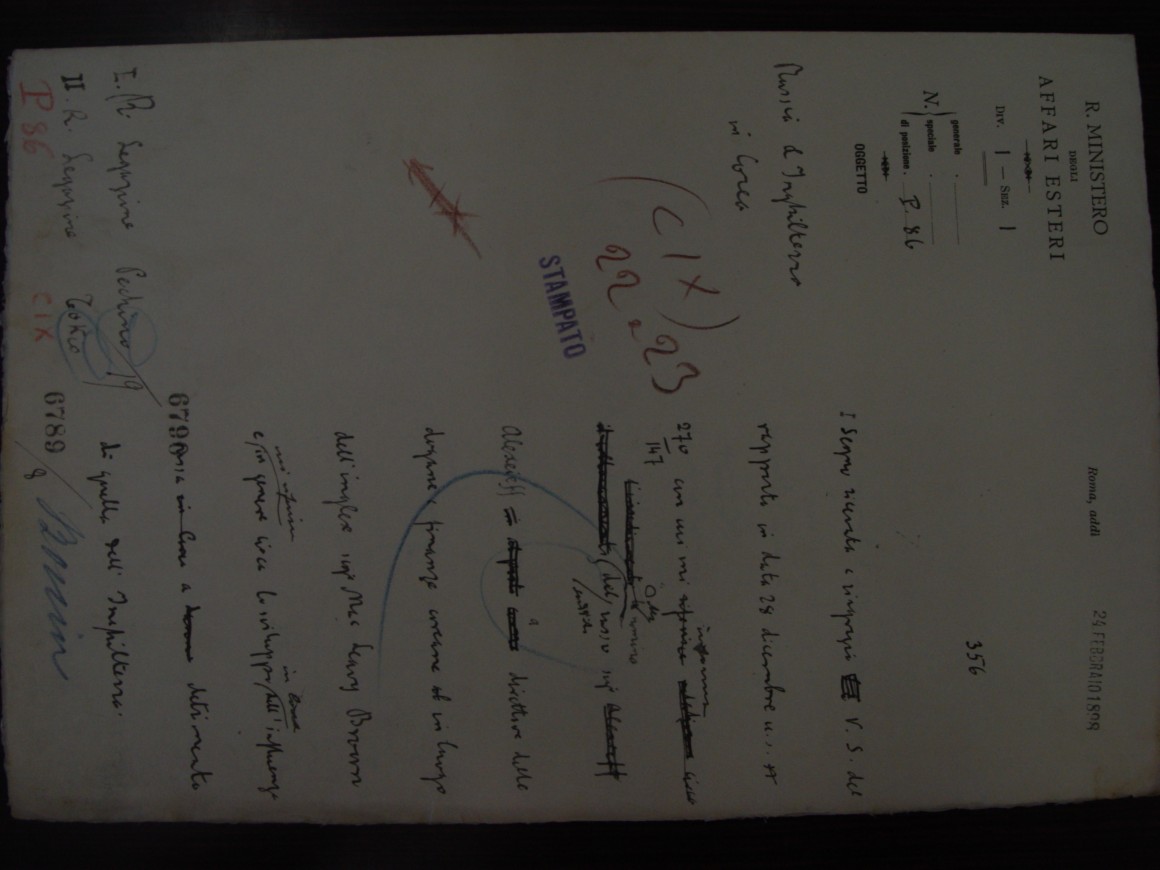 R. MINISTERO
DEGLI
AFFARI ESTERI
DIV. I — SEZ. I
N. generale
speciale
di posizione. P. 86
OGGETTO
Russi d'Inghilterra
in Corea
Roma, addì 24 FEBBRAIO 1898
356
(CIX)
22 a 23
STAMPATO
I Segno ricevuta e ringrazio V. S. del
rapporto in data 29 dicembre u. s. n
270
147
con cui mi informa circa
del russo sigr
Alexeieff a direttore delle
dogane e finanze coreane in luogo
dell'inglese sigr Mac Leavy Brown
e, in genere circa lo sviluppo in Corea dell'influenza
russa a detrimento
di quella dell'Inghilterra.
I. R. Legazione Pechino
II. R. Legazione Tokio
P 86 CIX
6790
6789